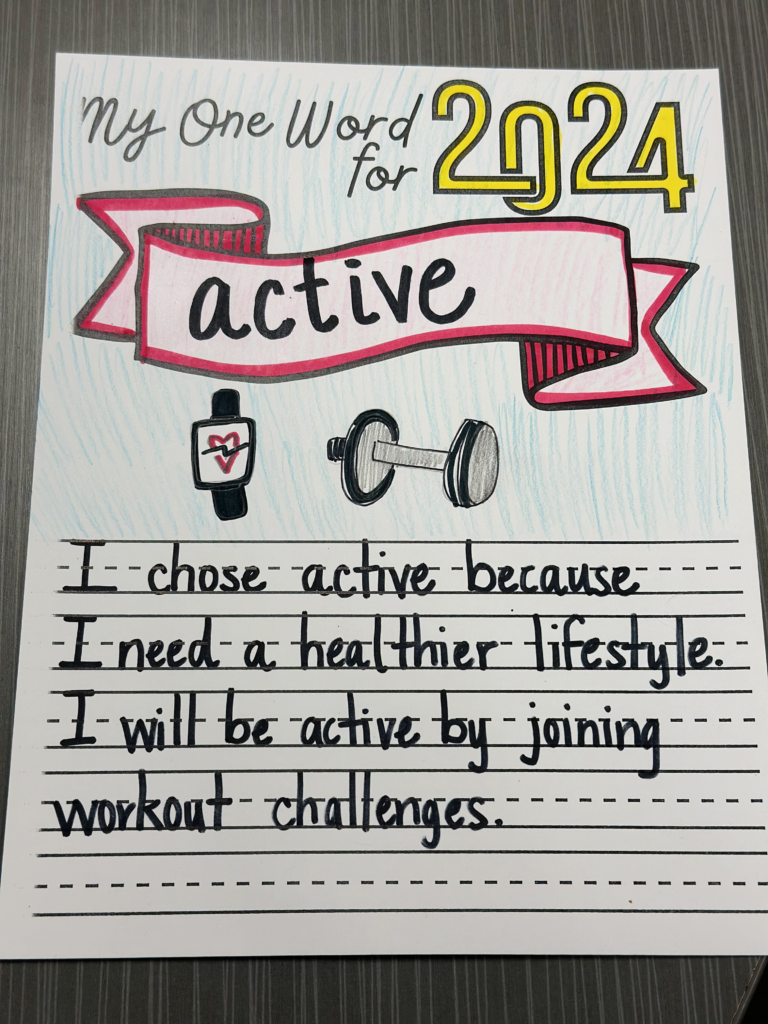 My One Word
for
2024
active
I chose active because
I need a healthier lifestyle.
I will be active by joining
workout challenges.